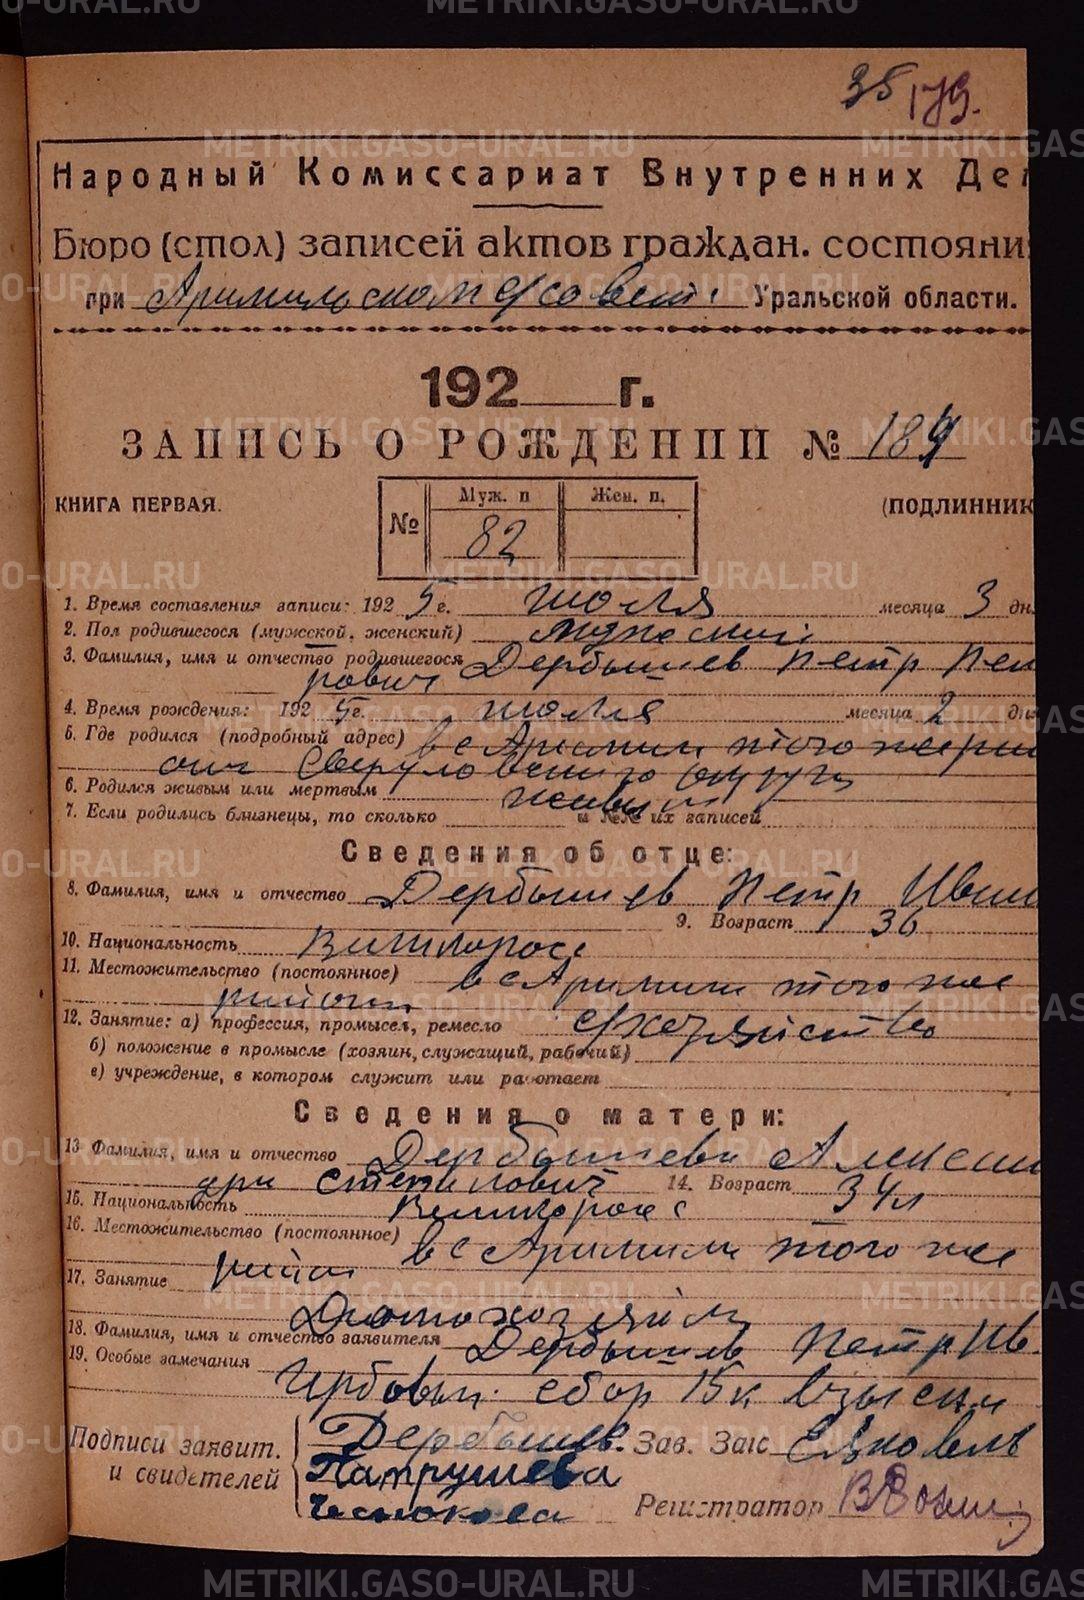 35 179.
Народный Комиссариат Внутренних Дел
Бюро (стол) записей актов граждан. состояни
при Арамильском с/совете Уральской области.
192 г.
ЗАПИСЬ О РОЖДЕНИИ № 189
КНИГА ПЕРВАЯ. (ПОДЛИННИК
№ Муж. п Жен. п.
82
1. Время составления записи: 192 5 г. июля месяца 3 дн
2. Пол родившегося (мужской, женский) мужской
3. Фамилия, имя и отчество родившегося Дербышев Петр Пет
рович
4. Время рождения: 192 5 г. июля месяца 2 дня
5. Где родился (подробный адрес) в с Арамили того же рай
она Свердловского округа
6. Родился живым или мертвым живым
7. Если родились близнецы, то сколько и №№ их записей
Сведения об отце:
8. Фамилия, имя и отчество Дербышев Петр Иван
9. Возраст 36
10. Национальность Великорос
11. Местожительство (постоянное) в с Арамили того же
района
12. Занятие: а) профессия, промысел, ремесло с/хозяйство
б) положение в промысле (хозяин, служащий, рабочий)
в) учреждение, в котором служит или работает
Сведения о матери:
13 Фамилия, имя и отчество Дербышева Алексан
дра 14. Возраст 34 л
15. Национальность Великорос
16. Местожительство (постоянное) в с Арамили того же
район
17. Занятие
Домохозяйка
18. Фамилия, имя и отчество заявителя Дербышев Петр Ив.
19. Особые замечания
Гербовый сбор 15 к взыскан
Подписи заявит. Дербышев. Зав. Загс
и свидетелей Патрушева
Чеснокова Регистратор
METRIKI.GASO-URAL.RU